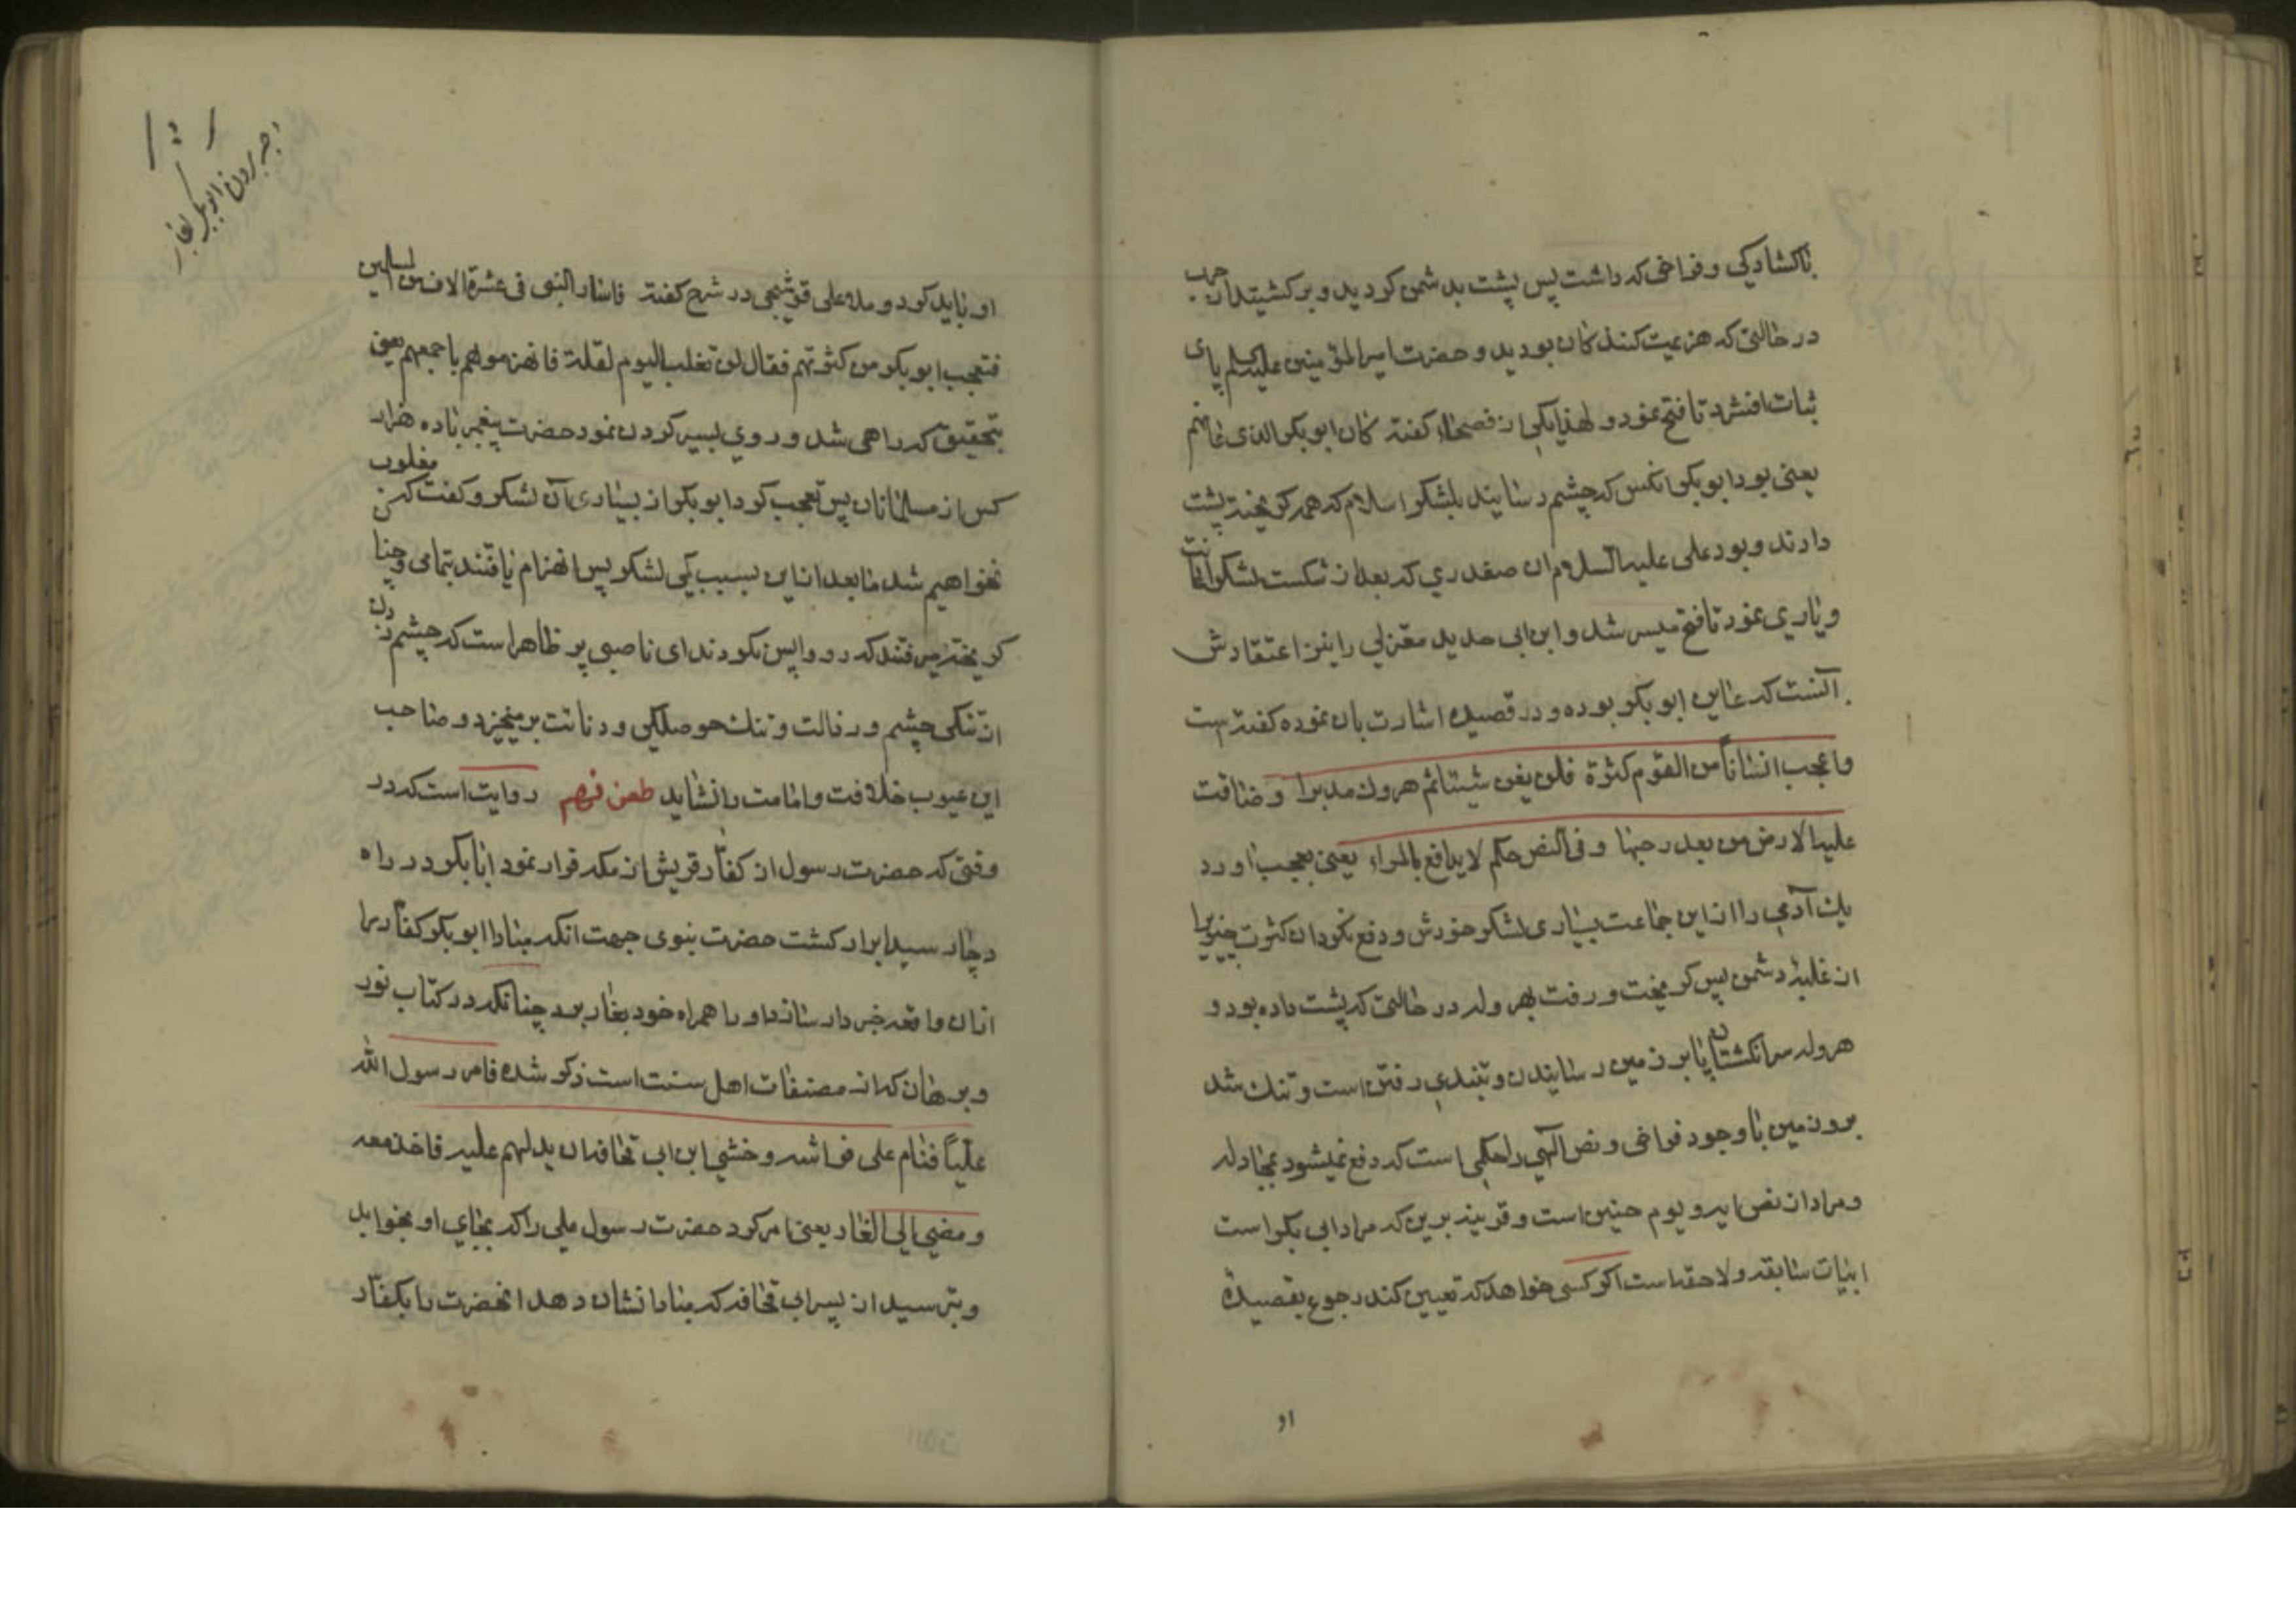 باکشادکی و فراخی که داشت پس پشت بدشمن کردید و برکشتید از حرب
در حالتی که هزیمت کنندکان بودید و حضرت امیرالمؤمنین علیه السلم پای
ثبات افشرد تا فتح نمود و لهذا یکی از فصحاء کفته کان ابوبکر الذی عانهم
یعنی بود ابوبکر انکس که چشم رسانید بلشکر اسلام که همه کریخته پشت
دادند و بود علی علیه السلام ان صفدری که بعد از شکست لشکر اعانت
و یاری نمود تا فتح میسر شد و ابن ابی حدید معتزلی را نیز اعتقادش
آنست که عاین ابوبکر بوده و در قصیده اشارت بان نموده کفته است
واعجب انسانا من القوم کثرة فلن یغن شیئا ثم هرول مدبرا وضاقت
علیه الارض من بعد رحبها وفی النص حکم لا یدافع بالمراء یعنی بعجب اورد
یک آدمی را از این جماعت بسیاری لشکر خودش و دفع نکرد ان کثرت چیزیرا
از غلبهٔ دشمن پس کریخت و رفت بهروله در حالتی که پشت داده بود و
هروله سر انکشتان پا بر زمین رسانیدن و بتندی رفتن است و تنک شد
برو زمین با وجود فراخی و نص الهی را حکمی است که دفع نمیشود بمجادله
و مراد از نص ایه و یوم حنین است و قرینه برین که مراد ابی بکر است
ابیات سابقه و لاحقه است اکر کسی خواهد که تعیین کند رجوع بقصیدهٔ
او
وجه بردن ابوبکر بغار
او باید کرد و ملا علی قوشجی در شرح کفته فاسار النبی فی عشرة الاف من المسلمین
فتعجب ابوبکر من کثرتهم فقال لن نغلب الیوم لقلة فانهزموا هم باجمعهم یعنی
بتحقیق که راهی شد و روی بسیر کردن نمود حضرت پیغمبر با ده هزار
کس از مسلمانان پس تعجب کرد ابوبکر از بسیاری آن لشکر و کفت که من مغلوب
نخواهیم شد ما بعد از این بسبب کمی لشکر پس انهزام یافتند بتمامی و چنا
کریخته میرفتند که رو واپس نکردند ای ناصبی پر ظاهر است که چشم زدن
از تنکی چشم و رذالت و تنک حوصلکی و دنائت برمیخیزد و صاحب
این عیوب خلافت و امامت را نشاید طعن نهم روایت است که در
وقتی که حضرت رسول از کفار قریش از مکه فرار نمود ابابکر در راه
دچار سید ابرار کشت حضرت نبوی جهت انکه مبادا ابوبکر کفار را
از ان واقعه خبردار سازد او را همراه خود بغار برد چنانکه در کتاب نور
و برهان که از مصنفات اهل سنت است ذکر شده فامر رسول الله
علیاً فنام علی فراشه وخشی ابن ابی قحافه ان یدلهم علیه فاخذ معه
ومضی الی الغار یعنی امر کرد حضرت رسول علی را که بجای او بخوابد
و بترسید از پسر ابی قحافه که مبادا نشان دهد انحضرت را بکفار